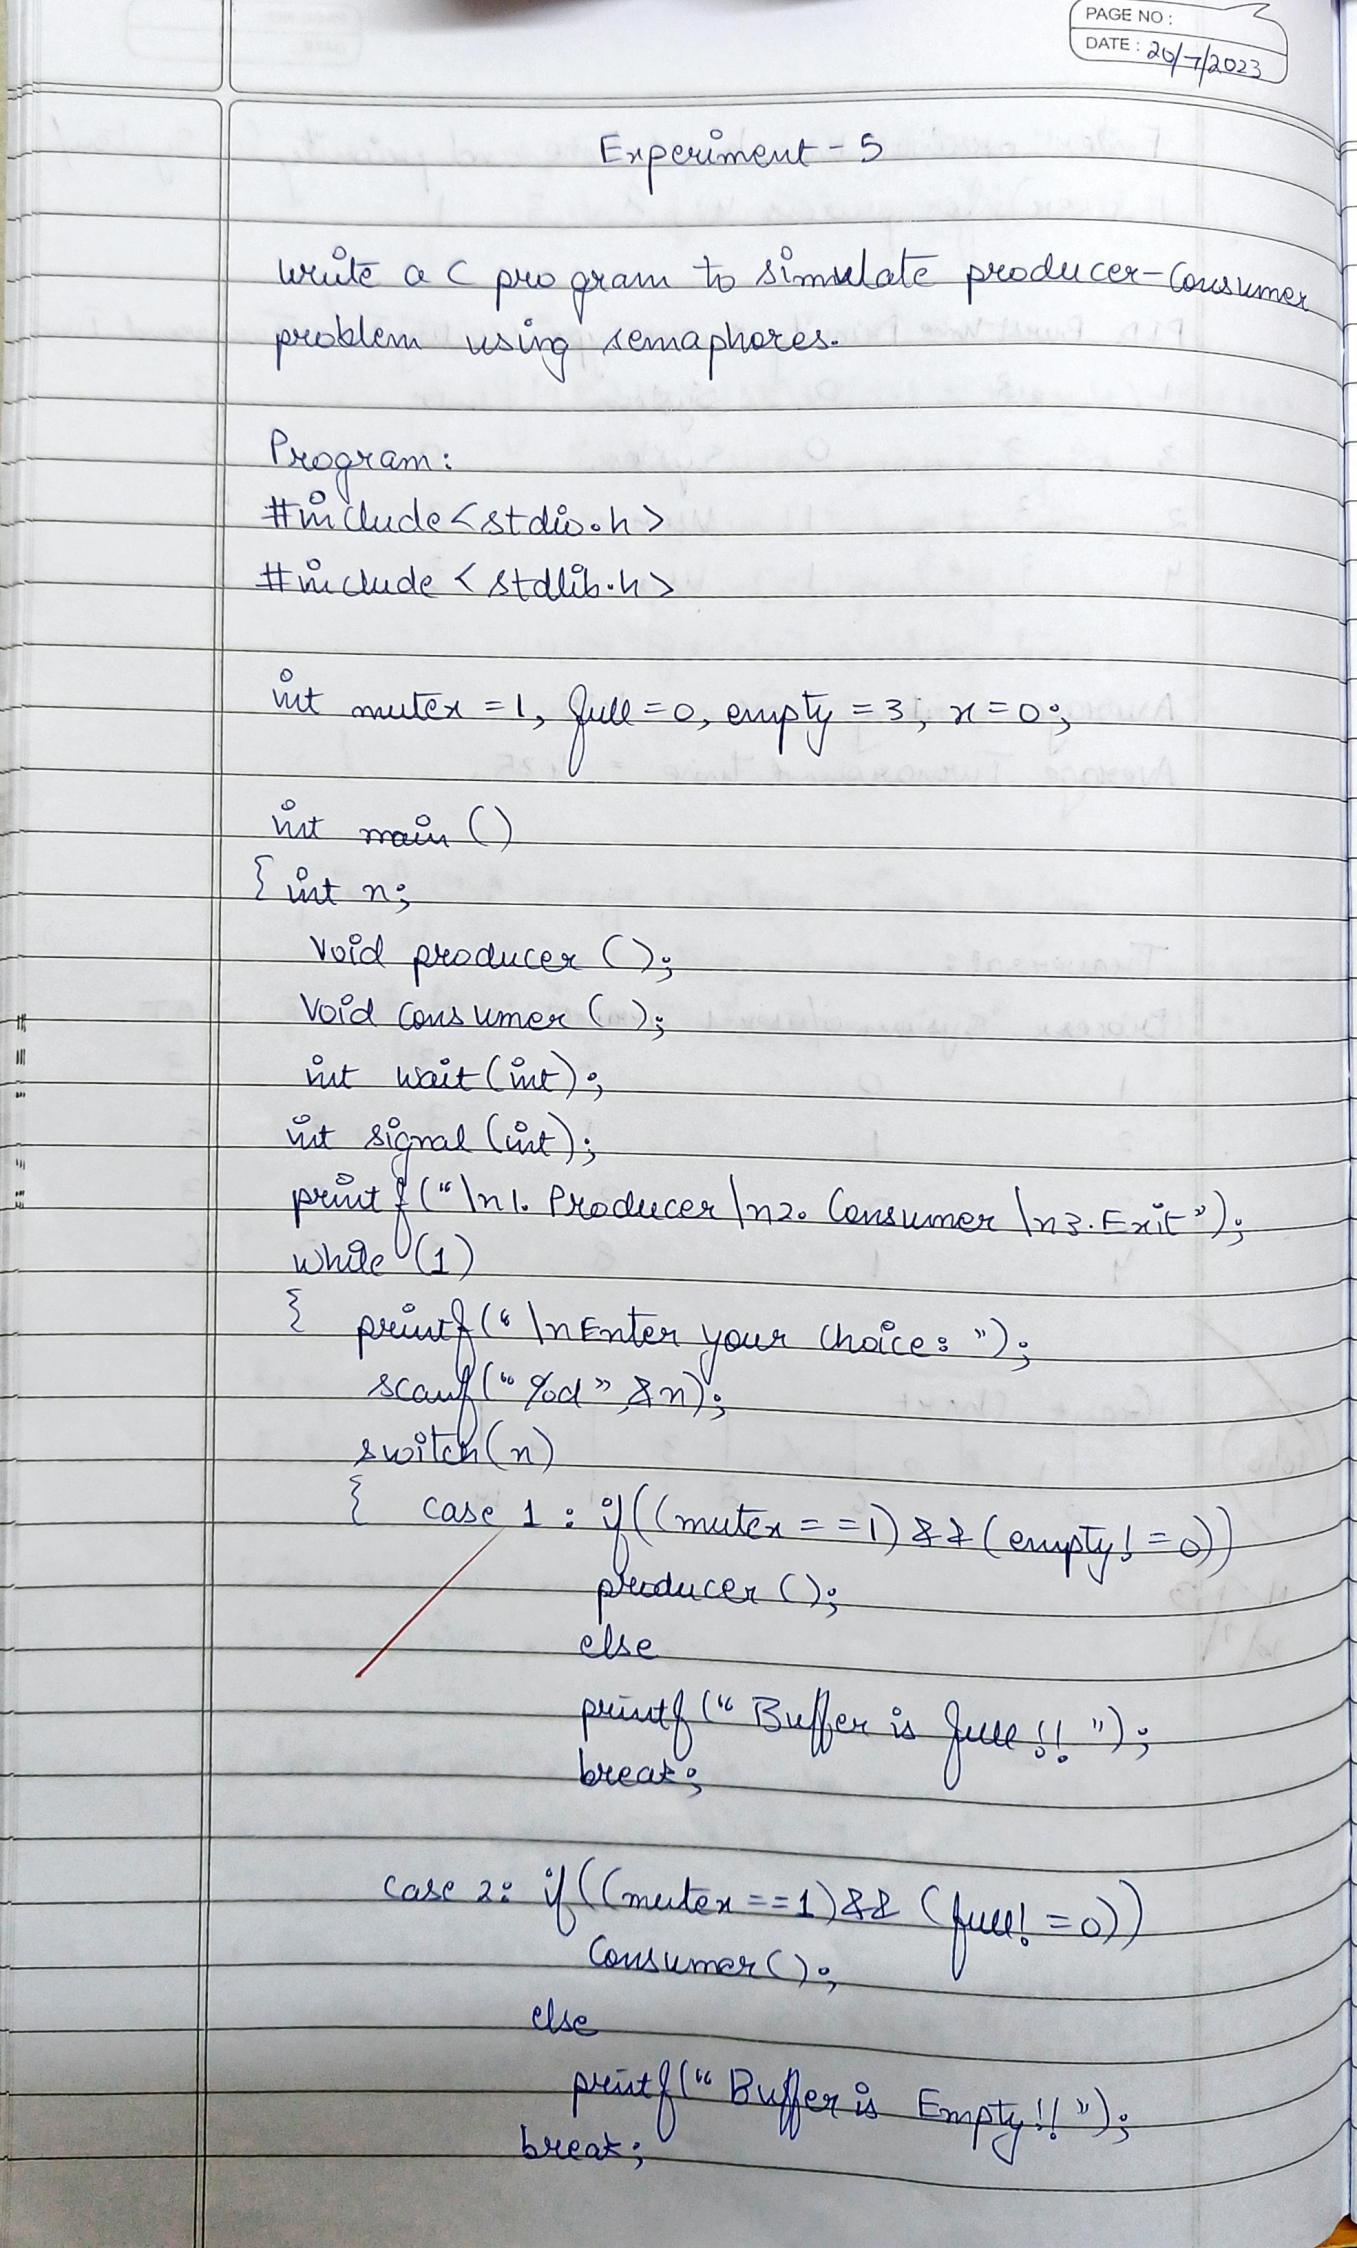 PAGE NO :
DATE : 20/7/2023
Experiment - 5
write a C program to simulate producer-Consumer
problem using semaphores.
Program:
#include<stdio.h>
#include <stdlib.h>
int mutex = 1, full = 0, empty = 3, x = 0;
int main ()
{ int n;
void producer ();
void consumer ();
int wait (int);
int signal (int);
printf ("\n1. Producer \n2. Consumer \n3. Exit");
while (1)
{ printf (" \nEnter your choice: ");
scanf ("%d", &n);
switch (n)
{ case 1 : if ((mutex == 1) && (empty != 0))
producer ();
else
printf (" Buffer is full !! ");
break;
case 2: if ((mutex == 1) && (full != 0))
Consumer ();
else
printf (" Buffer is Empty !! ");
break;